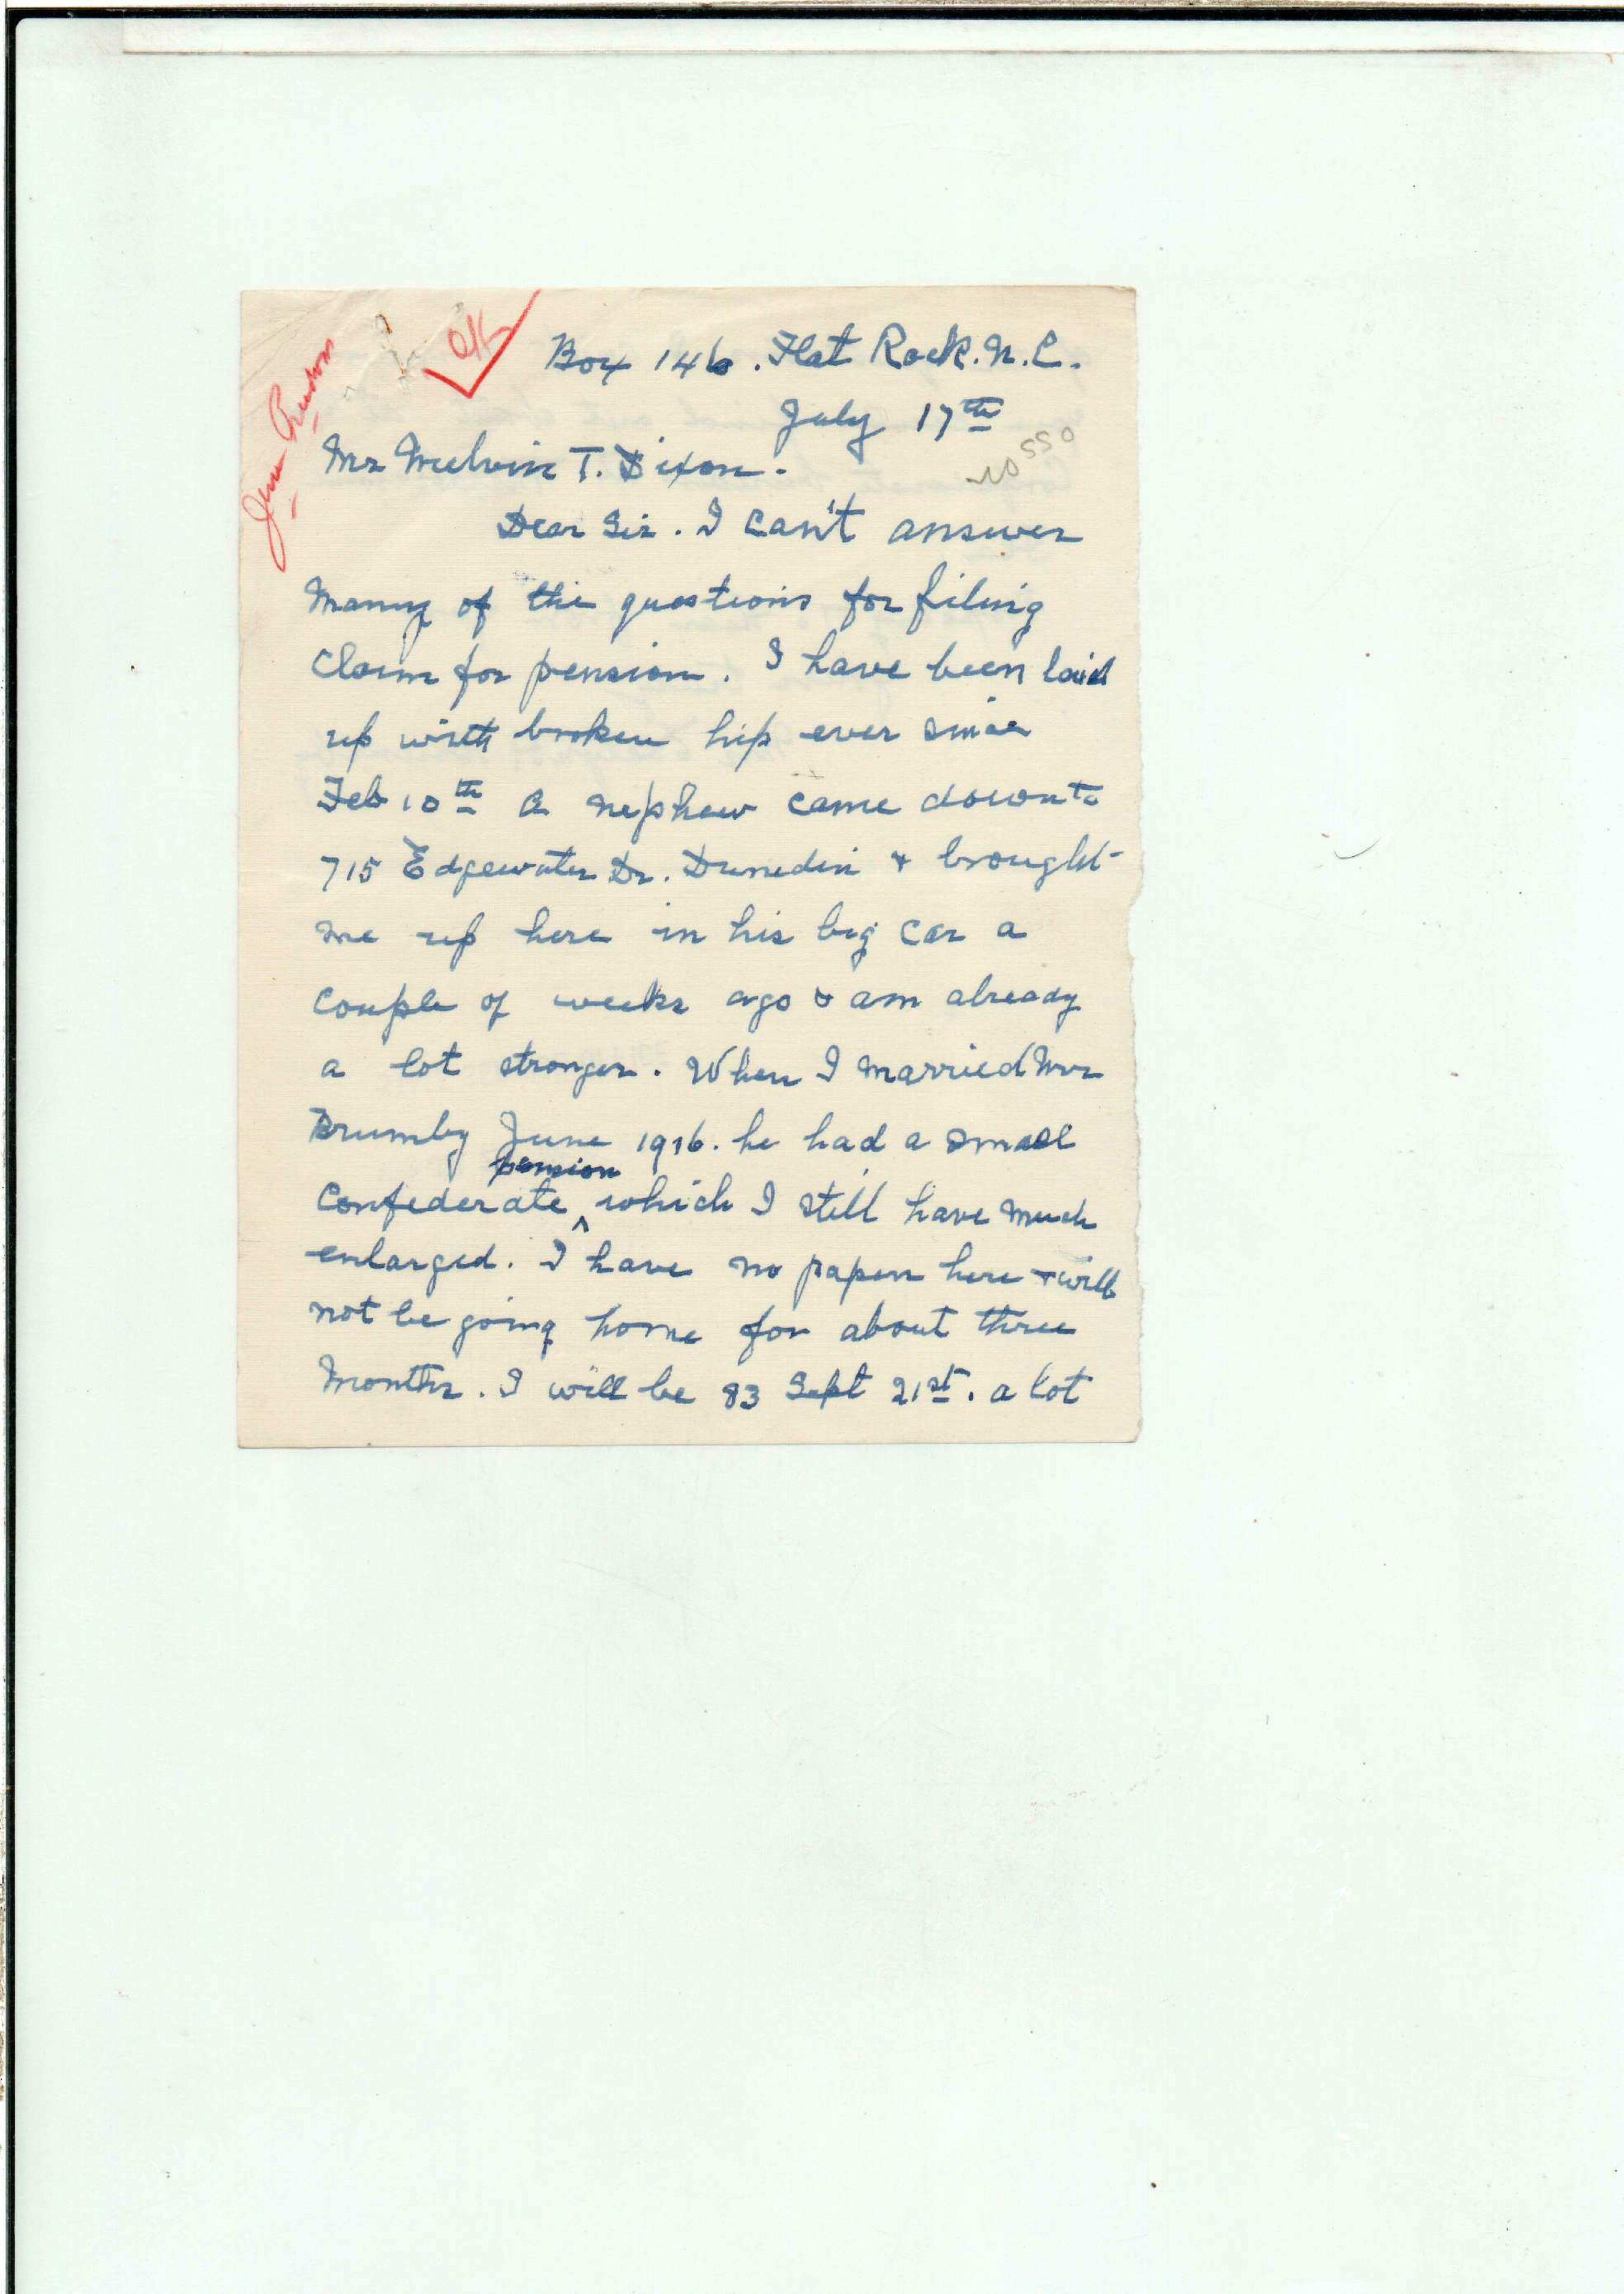 OK
Box 146. Flat Rock. N.C.
July 17th
Mr Melvin T. Dixon.
Dear Sir. I can't answer
many of the questions for filing
claim for pension. I have been laid
up with broken hip ever since
Feb 10th A nephew came down to
715 Edgewater Dr. Dunedin & brought
me up here in his big car a
couple of weeks ago & am already
a lot stronger. When I married Mr
Brumby June 1916. he had a small
pension
Confederate ^ which I still have much
enlarged. I have no papers here & will
not be going home for about three
months. I will be 83 Sept 21st. a lot